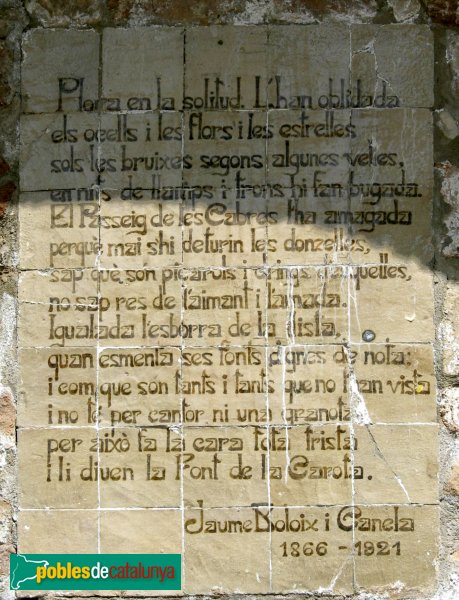 Plora en la solitud. L'han oblidada
els ocells i les flors i les estrelles
sols les bruixes segons algunes velles,
en nits de llamps i trons hi fan bugada.
El Passeig de les Cabres l'ha amagada
perquè mai s hi deturin les donzelles,
sap què són picarols i drings d'aquelles,
no sap res de l'aimant i l'aimada.
Igualada l'esborra de la llista,
quan esmenta ses fonts dignes de nota;
i com que són tants i tants que no l'han vista
i no té per cantor ni una granota
per això fa la cara tota trista
i li diuen la Font de la Carota.
Jaume Boloix i Canela
1866 - 1921
poblesdecatalunya